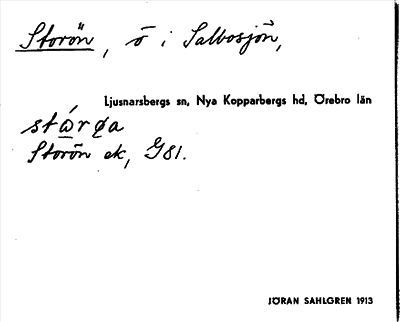 Storön, ö i Salbosjön,
Ljusnarsbergs sn, Nya Kopparbergs hd, Örebro län
Storön ek, G81.
JÖRAN SAHLGREN 1913